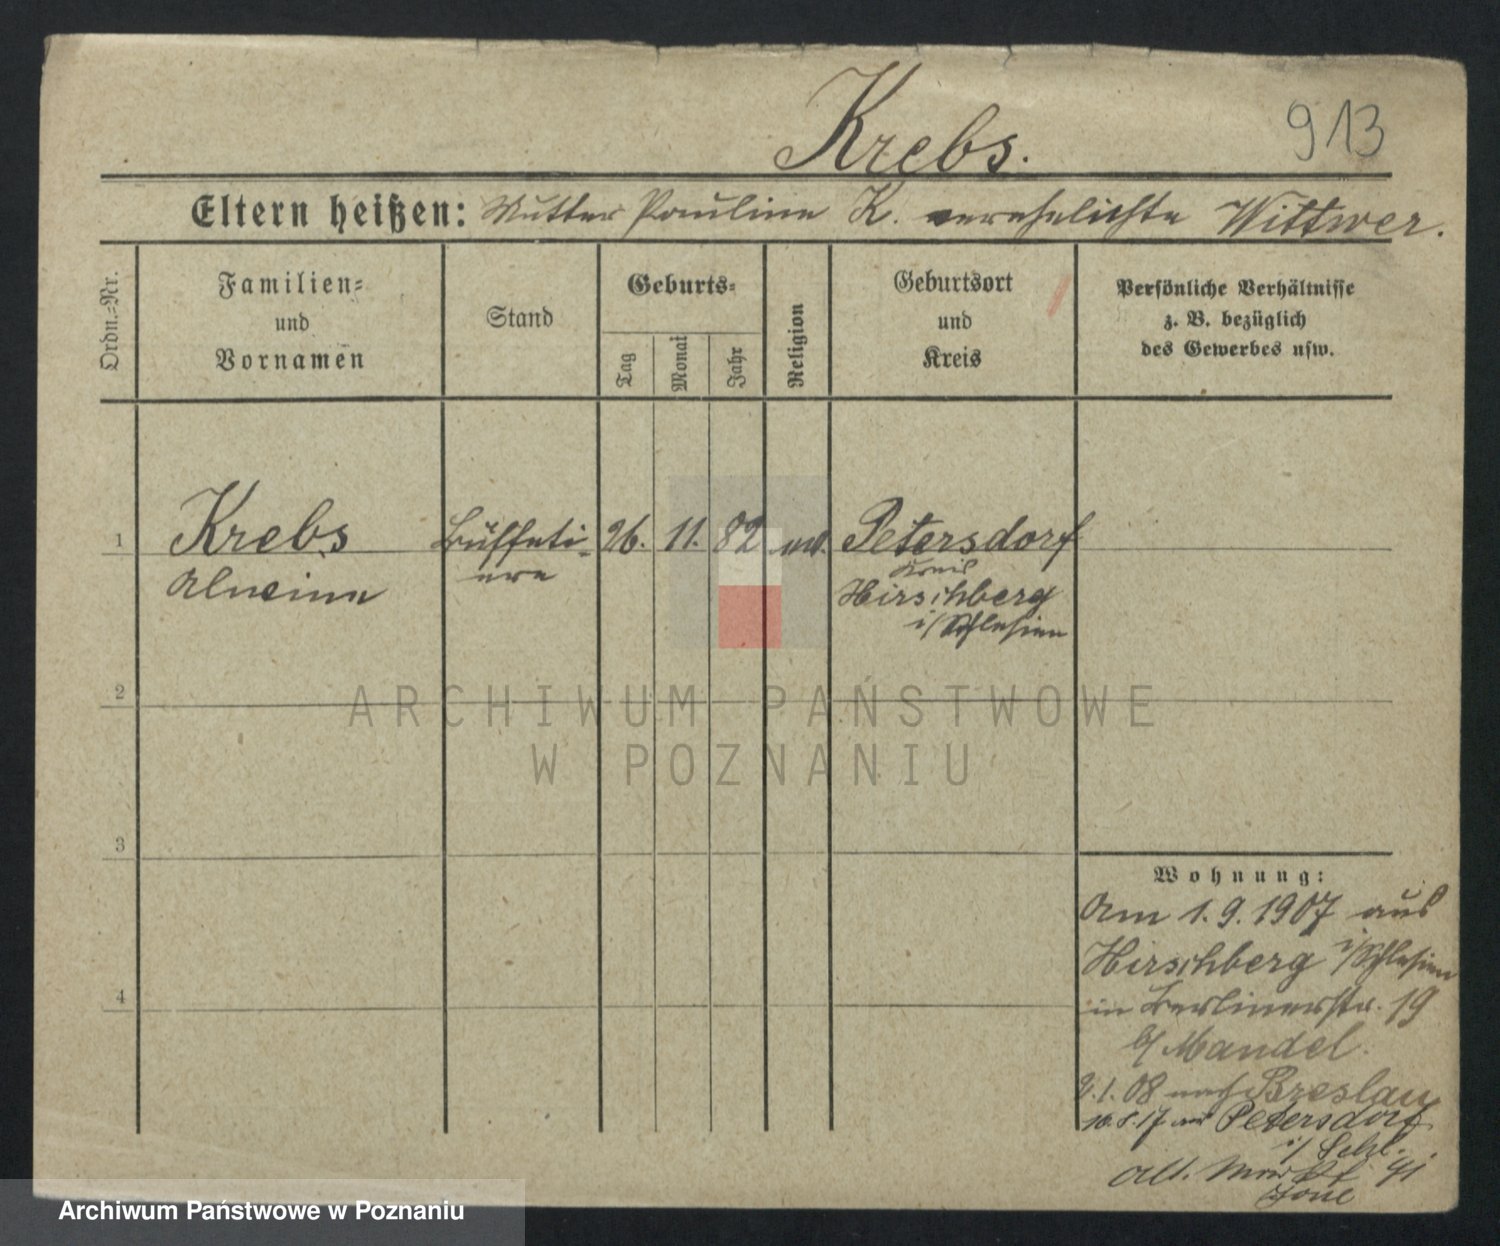 Krebs.
913
Eltern heißen: Mutter Pauline K. verehelichte Wittwer.
Ordn.-Nr.
Familien-
und
Vornamen
Stand
Geburts-
Tag
Monat
Jahr
Religion
Geburtsort
und
Kreis
Persönliche Verhältnisse
z. B. bezüglich
des Gewerbes usw.
1
Krebs
Büffeti-
ere
26. 11. 82
Petersdorf
Kreis
Hirschberg
i/Schlesien
2
ARCHIWUM PAŃSTWOWE
W POZNANIU
3
4
Wohnung:
Am 1.9.1907 aus
Hirschberg i/Schlesien
in Berlinerstr. 19
b/ Mandel.
2.1.08 nach Breslau
17 aus Petersdorf
i/ Schl.
Alt. Markt 41
Archiwum Państwowe w Poznaniu